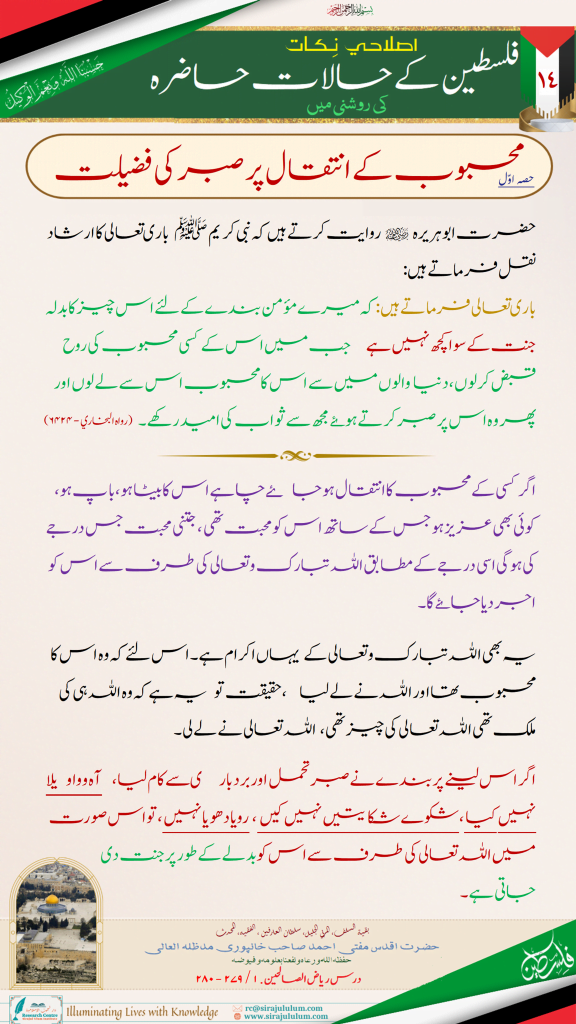 بسم اللہ الرحمن الرحیم
حَسْبُنَا اللّٰهُ وَنِعْمَ الْوَكِيْل
اصلاحی نِکات
فلسطین کے حالات حاضرہ
کی روشنی میں
١٤
محبوب کے انتقال پر صبر کی فضیلت
حصہ اوّل
حضرت ابوہریرہ ﷜ روایت کرتے ہیں کہ نبی کریم ﷺ باری تعالی کا ارشاد
نقل فرماتے ہیں:
باری تعالی فرماتے ہیں: کہ میرے مؤمن بندے کے لئے اس چیز کا بدلہ
جنت کے سوا کچھ نہیں ہے جب میں اس کے کسی محبوب کی روح
قبض کرلوں، دنیا والوں میں سے اس کا محبوب اس سے لے لوں اور
پھر وہ اس پر صبر کرتے ہوئے مجھ سے ثواب کی امید رکھے۔ (رواہ البخاري - ٦٤٢٤)
اگر کسی کے محبوب کا انتقال ہو جائے چاہے اس کا بیٹا ہو، باپ ہو،
کوئی بھی عزیز ہو جس کے ساتھ اس کو محبت تھی، جتنی محبت جس درجے
کی ہوگی اسی درجے کے مطابق اللہ تبارک وتعالی کی طرف سے اس کو
اجر دیا جائے گا۔
یہ بھی اللہ تبارک وتعالی کے یہاں اکرام ہے۔ اس لئے کہ وہ اس کا
محبوب تھا اور اللہ نے لے لیا ، حقیقت تو یہ ہے کہ وہ اللہ ہی کی
ملک تھی اللہ تعالی کی چیز تھی، اللہ تعالی نے لے لی۔
اگر اس لینے پر بندے نے صبر تحمل اور بردباری سے کام لیا، آہ و واویلا
نہیں کیا، شکوے شکایتیں نہیں کیں، رویا دھویا نہیں، تو اس صورت
میں اللہ تعالی کی طرف سے اس کو بدلے کے طور پر جنت دی
جاتی ہے۔
حضرت اقدس مفتی احمد صاحب خانپوری مدظلہ العالی
حفظه الله ورعاه ونفعنا بعلومه وفيوضه
درس ریاض الصالحین. ١ / ٢٧٩ - ٢٨٠
فلسطین
Research Centre
Illuminating Lives with Knowledge
rc@sirajululum.com
www.sirajululum.com